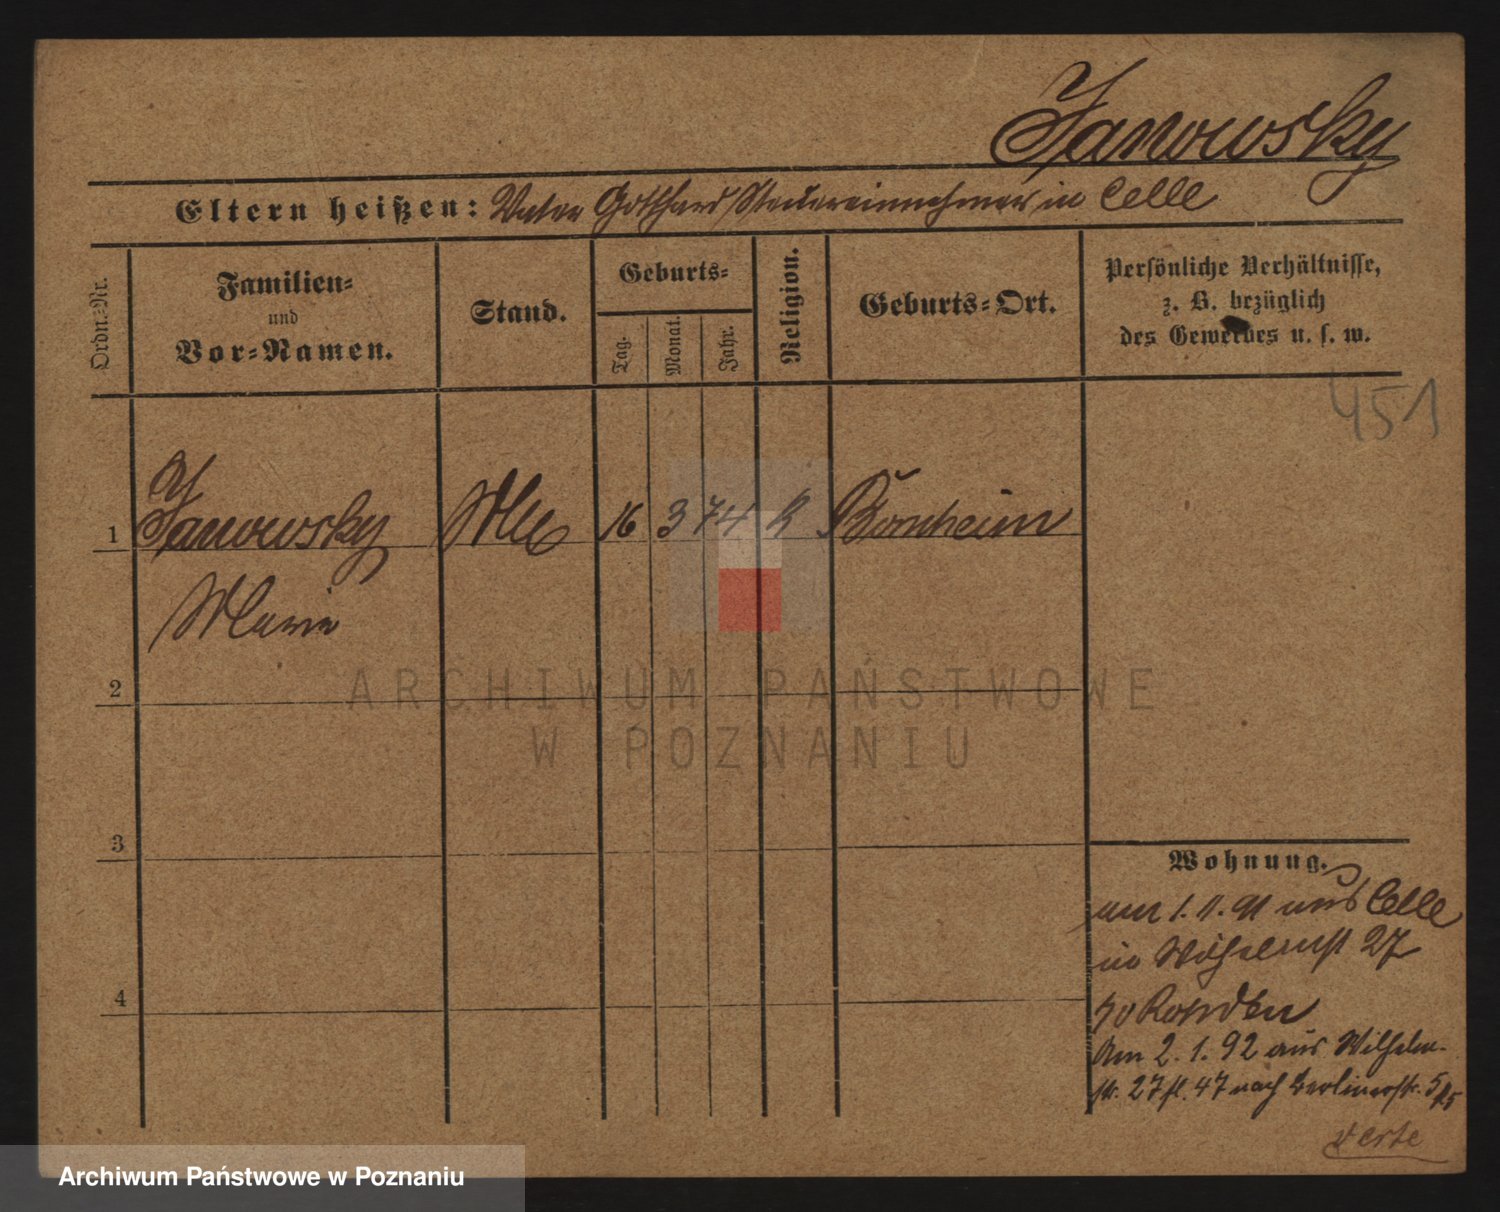 Janowsky
Eltern heißen: Vater Gotthard, Steuereinnehmer in Celle
Ordn.-Nr.
Familien-
und
Vor-Namen.
Stand.
Geburts-
Tag.
Monat.
Jahr.
Religion.
Geburts-Ort.
Persönliche Verhältnisse,
z. B. bezüglich
des Gewerbes u. s. w.
451
1 Janowsky 16 3 74 k Bornheim
Marie
2
3
4
ARCHIWUM PAŃSTWOWE
W POZNANIU
Wohnung.
am 1. 11. 91 aus Celle
in Wilhelmst 27
Am 2. 1. 92 aus Wilhelm-
str. 27 nach Berlinerstr. 5
verte
Archiwum Państwowe w Poznaniu